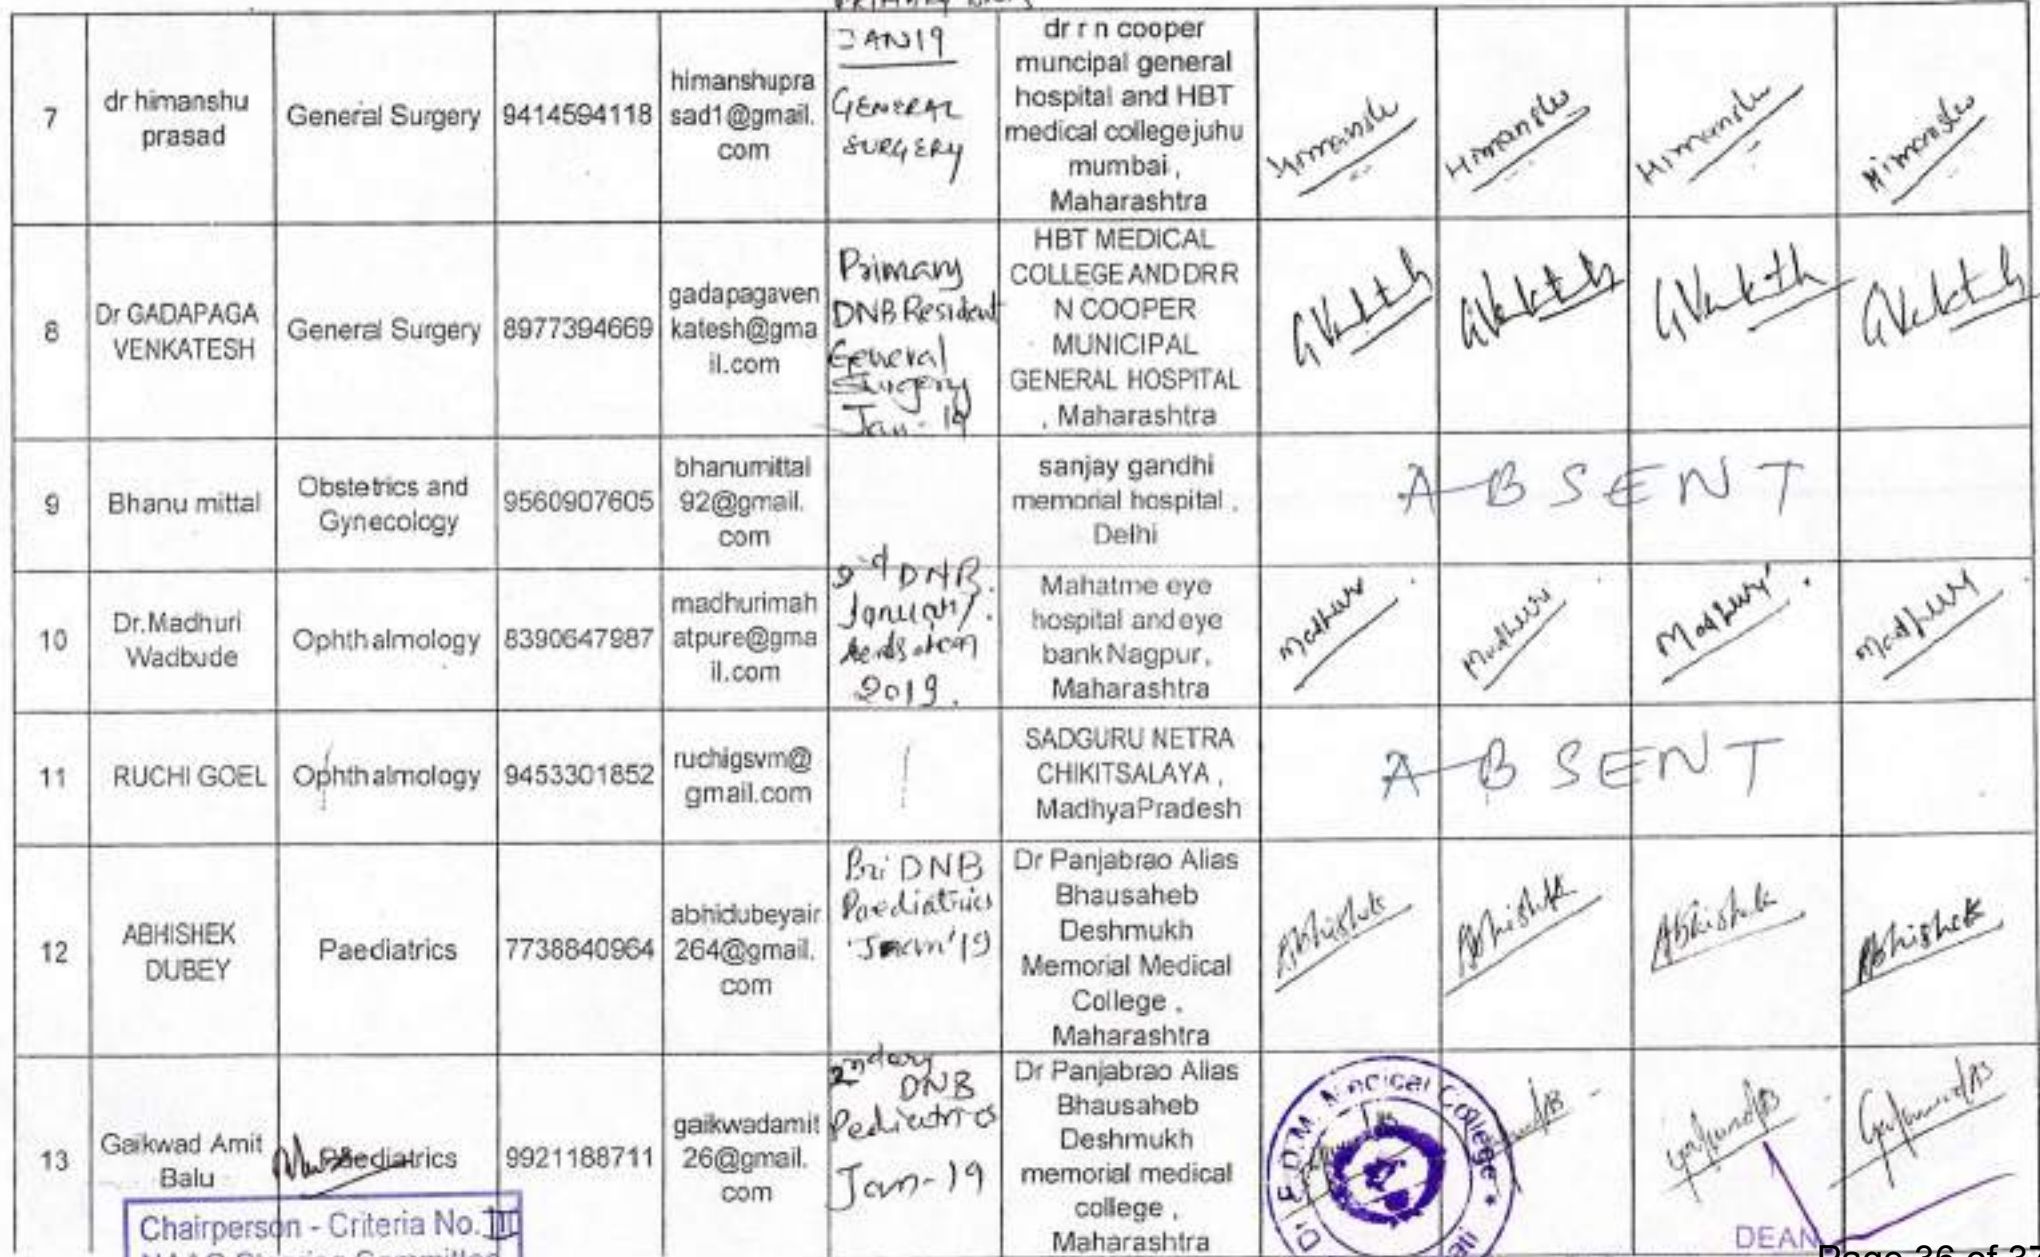 7
dr himanshu
prasad
General Surgery
9414594118
himanshupra
sad1@gmail.
com
JAN19
GENERAL
SURGERY
dr r n cooper
muncipal general
hospital and HBT
medical college juhu
mumbai,
Maharashtra
Himanshu
Himanshu
Himanshu
Himanshu
8
Dr GADAPAGA
VENKATESH
General Surgery
8977394669
gadapagaven
katesh@gma
il.com
Primary
DNB Resident
General
Surgery
Jan-19
HBT MEDICAL
COLLEGE AND DR R
N COOPER
MUNICIPAL
GENERAL HOSPITAL
, Maharashtra
9
Bhanu mittal
Obstetrics and
Gynecology
9560907605
bhanumittal
92@gmail.
com
sanjay gandhi
memorial hospital ,
Delhi
ABSENT
10
Dr.Madhuri
Wadbude
Ophthalmology
8390647987
madhurimah
atpure@gma
il.com
DNB.
January.
2019.
Mahatme eye
hospital and eye
bank Nagpur,
Maharashtra
Madhuri
Madhuri
Madhuri
Madhuri
11
RUCHI GOEL
Ophthalmology
9453301852
ruchigsvm@
gmail.com
SADGURU NETRA
CHIKITSALAYA ,
MadhyaPradesh
ABSENT
12
ABHISHEK
DUBEY
Paediatrics
7738840964
abhidubeyair
264@gmail.
com
Pri DNB
Paediatrics
Jan'19
Dr Panjabrao Alias
Bhausaheb
Deshmukh
Memorial Medical
College ,
Maharashtra
Abhishek
Abhishek
Abhishek
Abhishek
13
Gaikwad Amit
Balu
Paediatrics
9921188711
gaikwadamit
26@gmail.
com
2ndary
DNB
Pediatrics
Jan-19
Dr Panjabrao Alias
Bhausaheb
Deshmukh
memorial medical
college ,
Maharashtra
Medical College
Chairperson - Criteria No. III
DEAN
Page 36 of 3